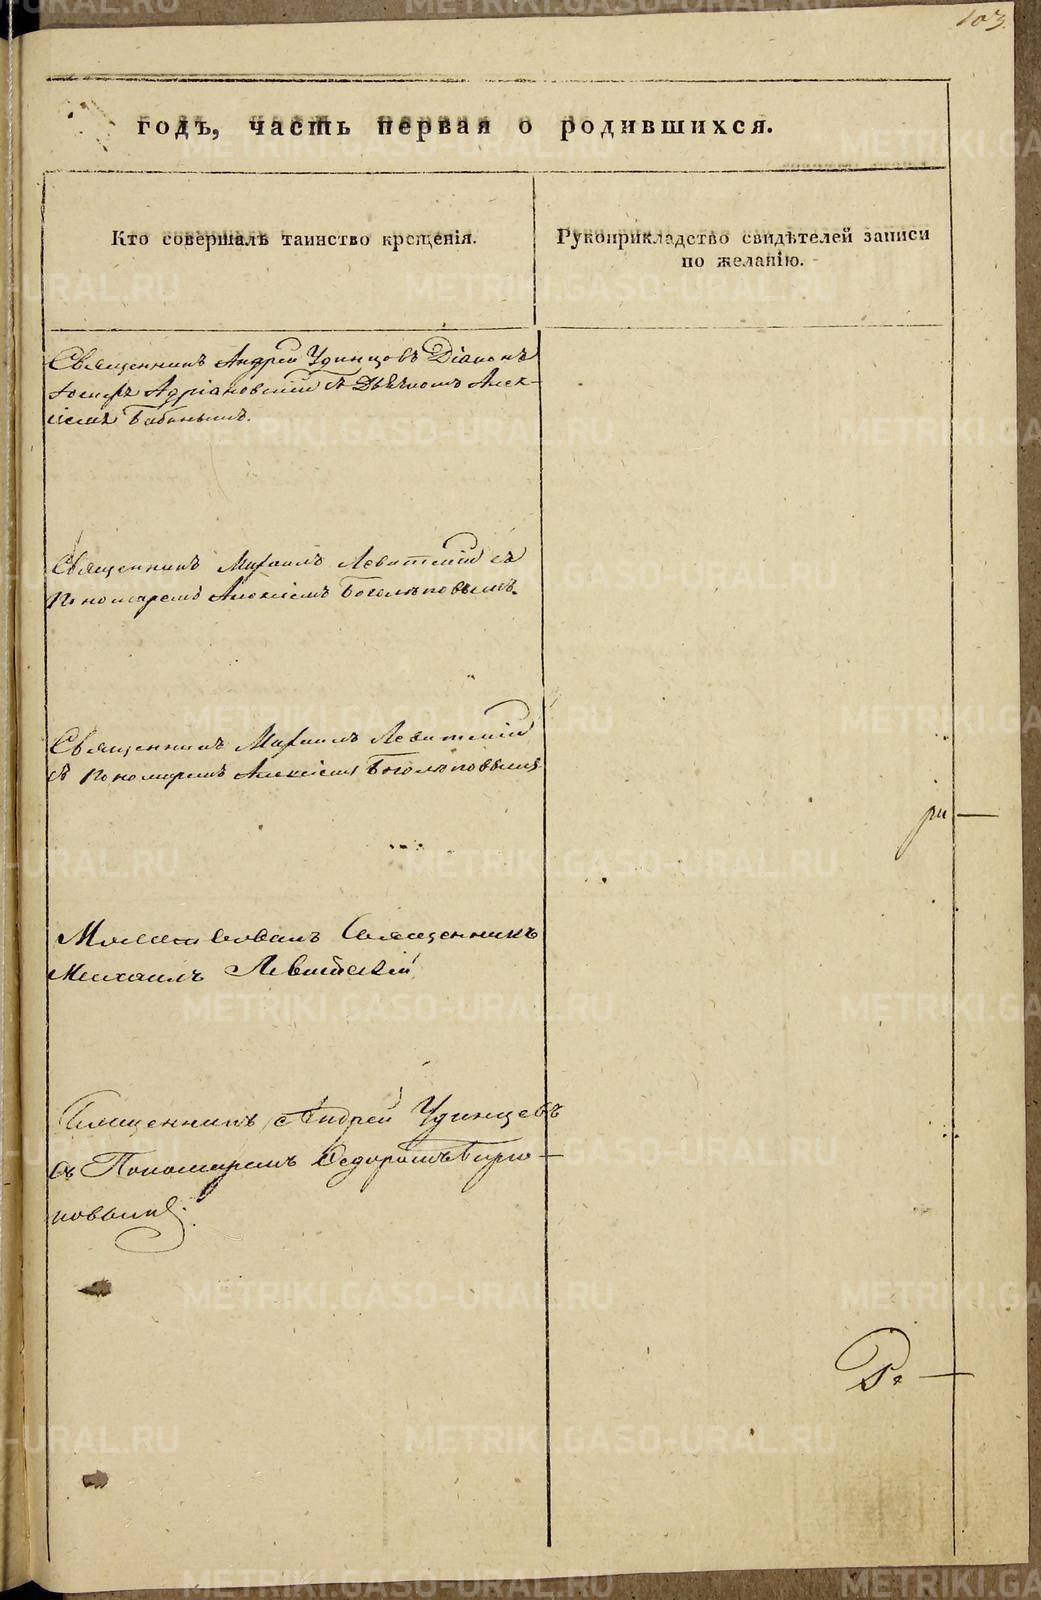 103
годъ, часть первая о родившихся.
Кто совершалъ таинство крещенія.
Рукоприкладство свидѣтелей записи
по желанію.
Священникъ Андрей Удинцовъ Діаконъ
Іосифъ Адріановскій съ Дьячкомъ Алек-
сіемъ Бабинымъ.
Священникъ Михаилъ Левитскій съ
Пономаремъ Алексіемъ Боголѣповымъ.
Священникъ Михаилъ Левитскій
съ Пономаремъ Алексіемъ Боголѣповымъ
Молитвовалъ Священникъ
Михаилъ Левитскій
Священникъ Андрей Удинцевъ
Съ Пономаремъ Ѳедоромъ
METRIKI.GASO-URAL.RU